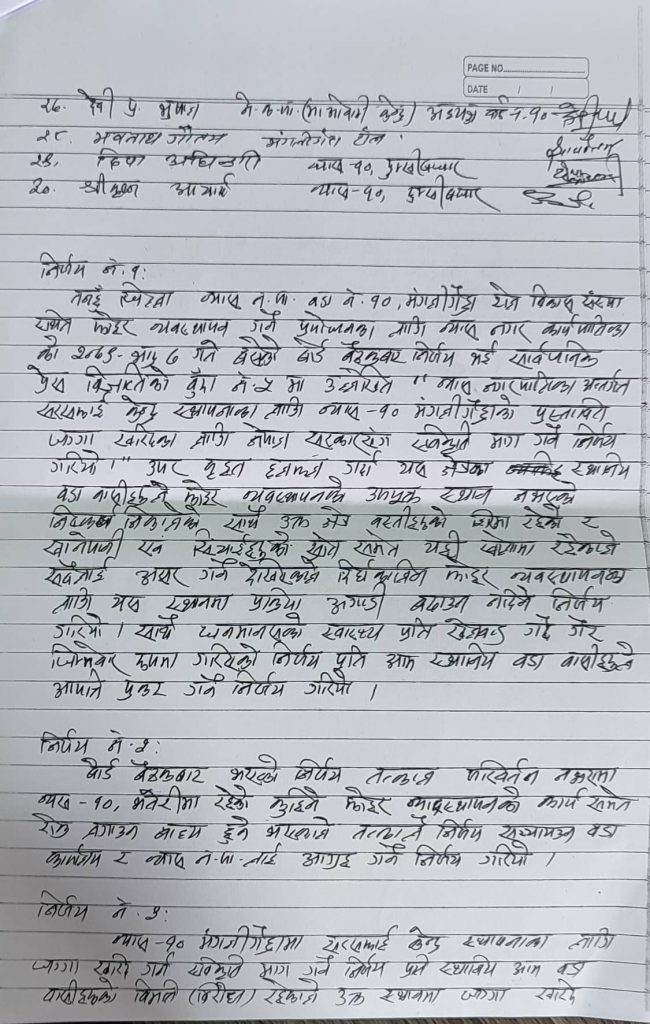 PAGE NO.
DATE / /
देवी प्र. भुषाल ने.क.पा. (माओवादी केन्द्र) वडा नं. १०
भवनाथ गौतम मंगलीगैडा टोल
२९. दिपा अधिकारी व्यास-१०,
३०. श्रीकृष्ण आचार्य व्यास-१०,
निर्णय नं. १:
व्यास न.पा. वडा नं. १०, मंगलीगैडा टोल विकास संस्था
फोहर व्यवस्थापन गर्ने प्रयोजनका लागि व्यास नगर कार्यपालिका
को गते बसेको बोर्ड बैठकबाट निर्णय भई सार्वजनिक
प्रेस विज्ञप्तिको बुँदा नं. ५ मा उल्लेखित " व्यास नगरपालिका अन्तर्गत
सरसफाई केन्द्र स्थापनाका लागि व्यास -१० मंगलीगैडाको प्रस्तावित
जग्गा खरिदका लागि नेपाल सरकारसंग स्वीकृति माग गर्ने निर्णय
गरियो।" उपर छलफल गर्दा यस स्थानीय
वडा वासीहरुले फोहर व्यवस्थापनको उपयुक्त स्थान नभएको
निष्कर्ष निकालेको साथै उक्त क्षेत्र वस्तीहरुको शिरमा रहेको र
खानेपानी एवं सिंचाईहरुको स्रोत समेत यही रहेकाले
सबैलाई असर गर्ने देखिएकाले दिर्घकालिन फोहर व्यवस्थापनका
लागि यस स्थानमा प्रक्रिया अगाडी बढाउन नदिने निर्णय
गरियो। साथै जनमानसको स्वास्थ्य प्रति खेलवाड गर्दै गैर
जिम्मेवार रुपमा गरिएको निर्णय प्रति आम स्थानिय वडा वासीहरुले
आपत्ति प्रकट गर्ने निर्णय गरियो।
निर्णय नं. २:
बोर्ड बैठकबाट भएको निर्णय तत्काल परिवर्तन नभएमा
व्यास -१०, रहेको फोहर व्यवस्थापनको कार्य समेत
रोक लगाउन बाध्य हुने भएकाले तत्काल निर्णय सच्याउन वडा
कार्यालय र व्यास न.पा. लाई आग्रह गर्ने निर्णय गरियो।
निर्णय नं. ३:
व्यास -१० मंगलीगैडामा सरसफाई केन्द्र स्थापनाका लागि
जग्गा खरिद गर्न स्वीकृति माग गर्ने निर्णय प्रति स्थानिय आम वडा
वासीहरुको विमति (विरोध) रहेकाले उक्त स्थानमा जग्गा खरिद